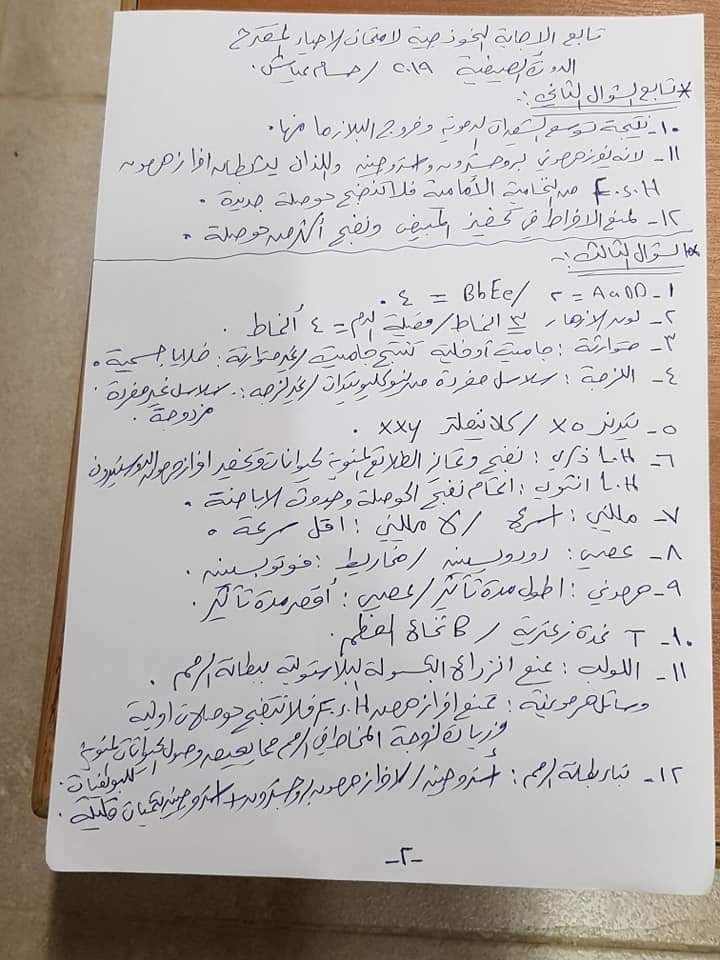 تابع الاجابة النموذجية لامتحان الاحياء المقترح
الدورة الصيفية ٢٠١٩ / حسام عياش.
* تابع السؤال الثاني :-
١٠- نتيجة توسع الشعيرات الدموية وخروج البلازما منها.
١١- لانه يفرز هرموني بروجسترون واستروجين واللذان يثبطان افراز هرمون
F.S.H من النخامية الأمامية فلا تنضج حوصلة جديدة .
١٢- لمنع الافراط في تحفيز المبيض ونضج أكثر من حوصلة .
* السؤال الثالث :-
١- AaDD = ٢ / BbEe = ٤ .
٢- لون الازهار ٣ انماط / فصيلة الدم = ٤ أنماط .
٣- متوارثة : جاميتية أو خلية تنتج جاميت / غير متوارثة : خلايا جسمية .
٤- اللزجة : سلاسل مفردة من نيوكليوتيدات / غير لزجة : سلاسل غير مفردة .
مزدوجة .
٥- تيرنر XO / كلاينفلتر XXY .
٦- L.H ذكري : نضج وتمايز الطلائع المنوية لحيوانات وتحفيز افراز هرمون التستوستيرون
L.H انثوي : اتمام نضج الحوصلة وحدوث الاباضة .
٧- مليني : اسرع / لا مليني : اقل سرعة .
٨- عصي : رودوبسين / مخاريط : فوتوبسين .
٩- هرموني : اطول مدة تأثير / عصبي : أقصر مدة تأثير .
١٠- T غدة زعترية / B نخاع العظم .
١١- اللولب : يمنع انزراع الكبسولة البلاستولية ببطانة الرحم .
وسائل هرمونية : تمنع افراز هرمون F.S.H فلا تنضج حوصلات اولية
وزيادة لزوجة المخاط في الرحم مما يعيق وصول الحيوانات المنوية
١٢- بطانة الرحم : أستروجين / افراز هرمون بروجسترون واستروجين بكميات قليلة .
-٢-